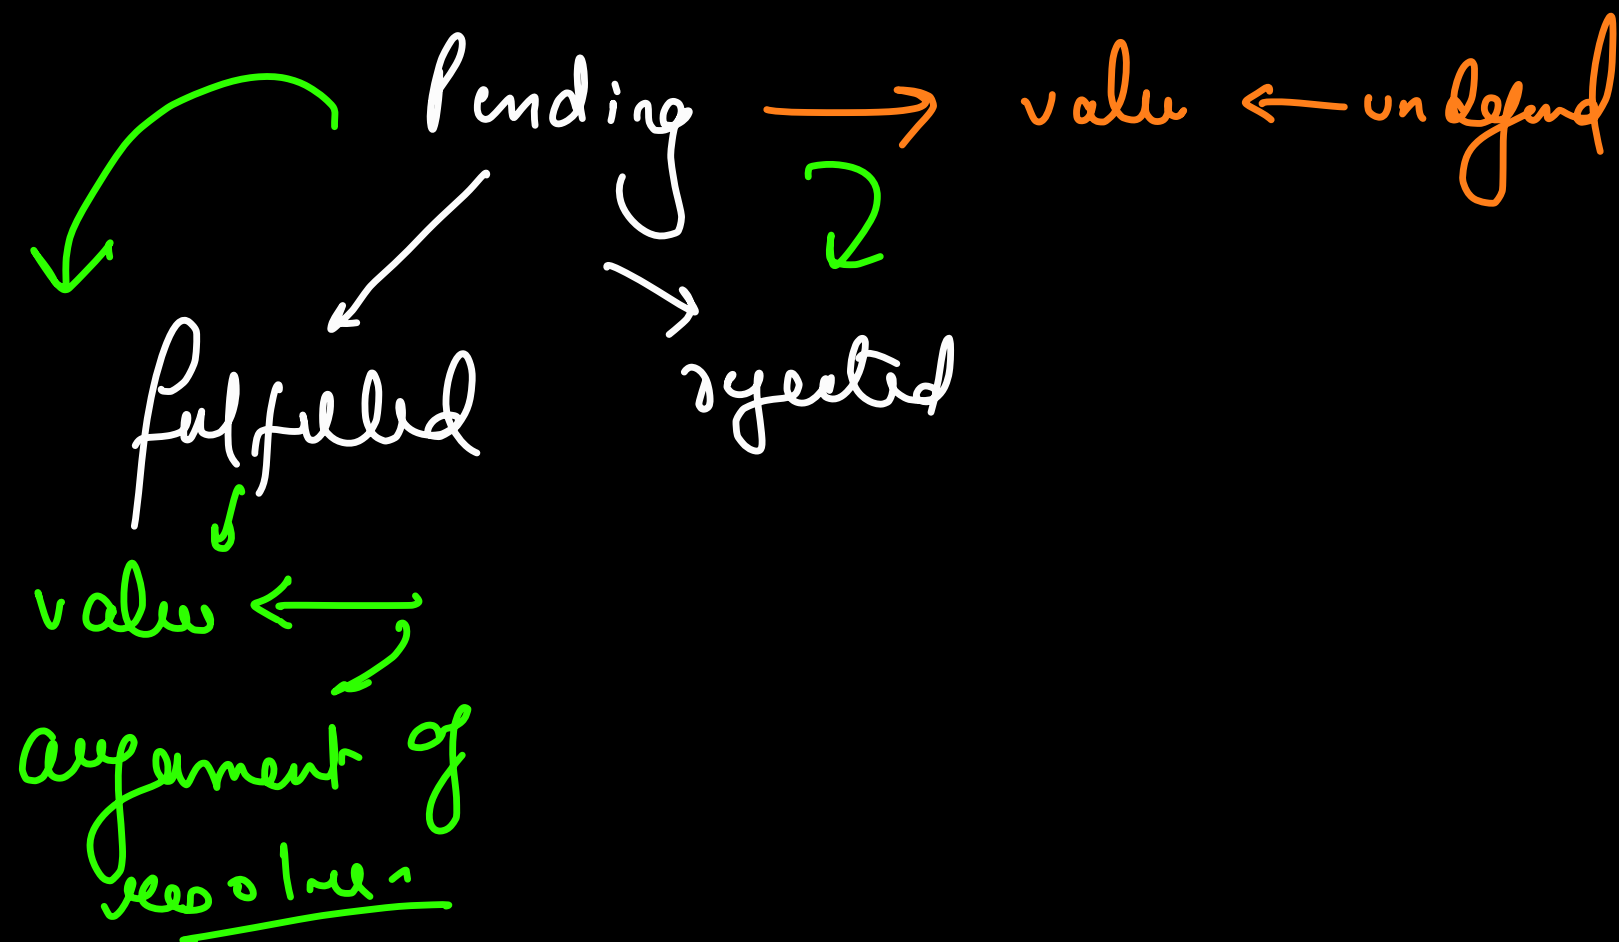 Pending → value ← undefined
fulfilled rejected
value ←
argument of
resolve